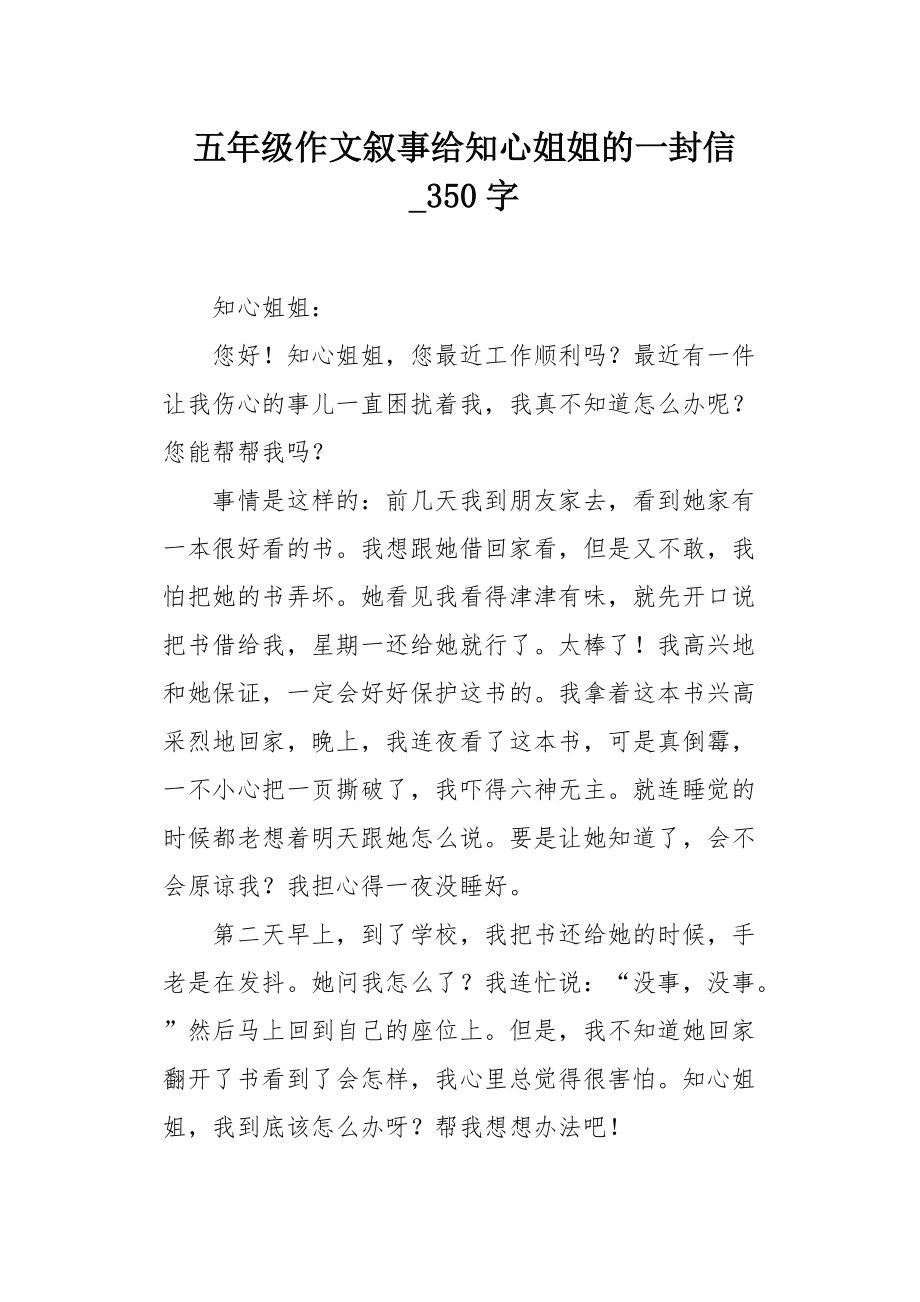 五年级作文叙事给知心姐姐的一封信
_350 字
知心姐姐：
您好！知心姐姐，您最近工作顺利吗？最近有一件
让我伤心的事儿一直困扰着我，我真不知道怎么办呢？
您能帮帮我吗？
事情是这样的：前几天我到朋友家去，看到她家有
一本很好看的书。我想跟她借回家看，但是又不敢，我
怕把她的书弄坏。她看见我看得津津有味，就先开口说
把书借给我，星期一还给她就行了。太棒了！我高兴地
和她保证，一定会好好保护这书的。我拿着这本书兴高
采烈地回家，晚上，我连夜看了这本书，可是真倒霉，
一不小心把一页撕破了，我吓得六神无主。就连睡觉的
时候都老想着明天跟她怎么说。要是让她知道了，会不
会原谅我？我担心得一夜没睡好。
第二天早上，到了学校，我把书还给她的时候，手
老是在发抖。她问我怎么了？我连忙说：“没事，没事。
”然后马上回到自己的座位上。但是，我不知道她回家
翻开了书看到了会怎样，我心里总觉得很害怕。知心姐
姐，我到底该怎么办呀？帮我想想办法吧！